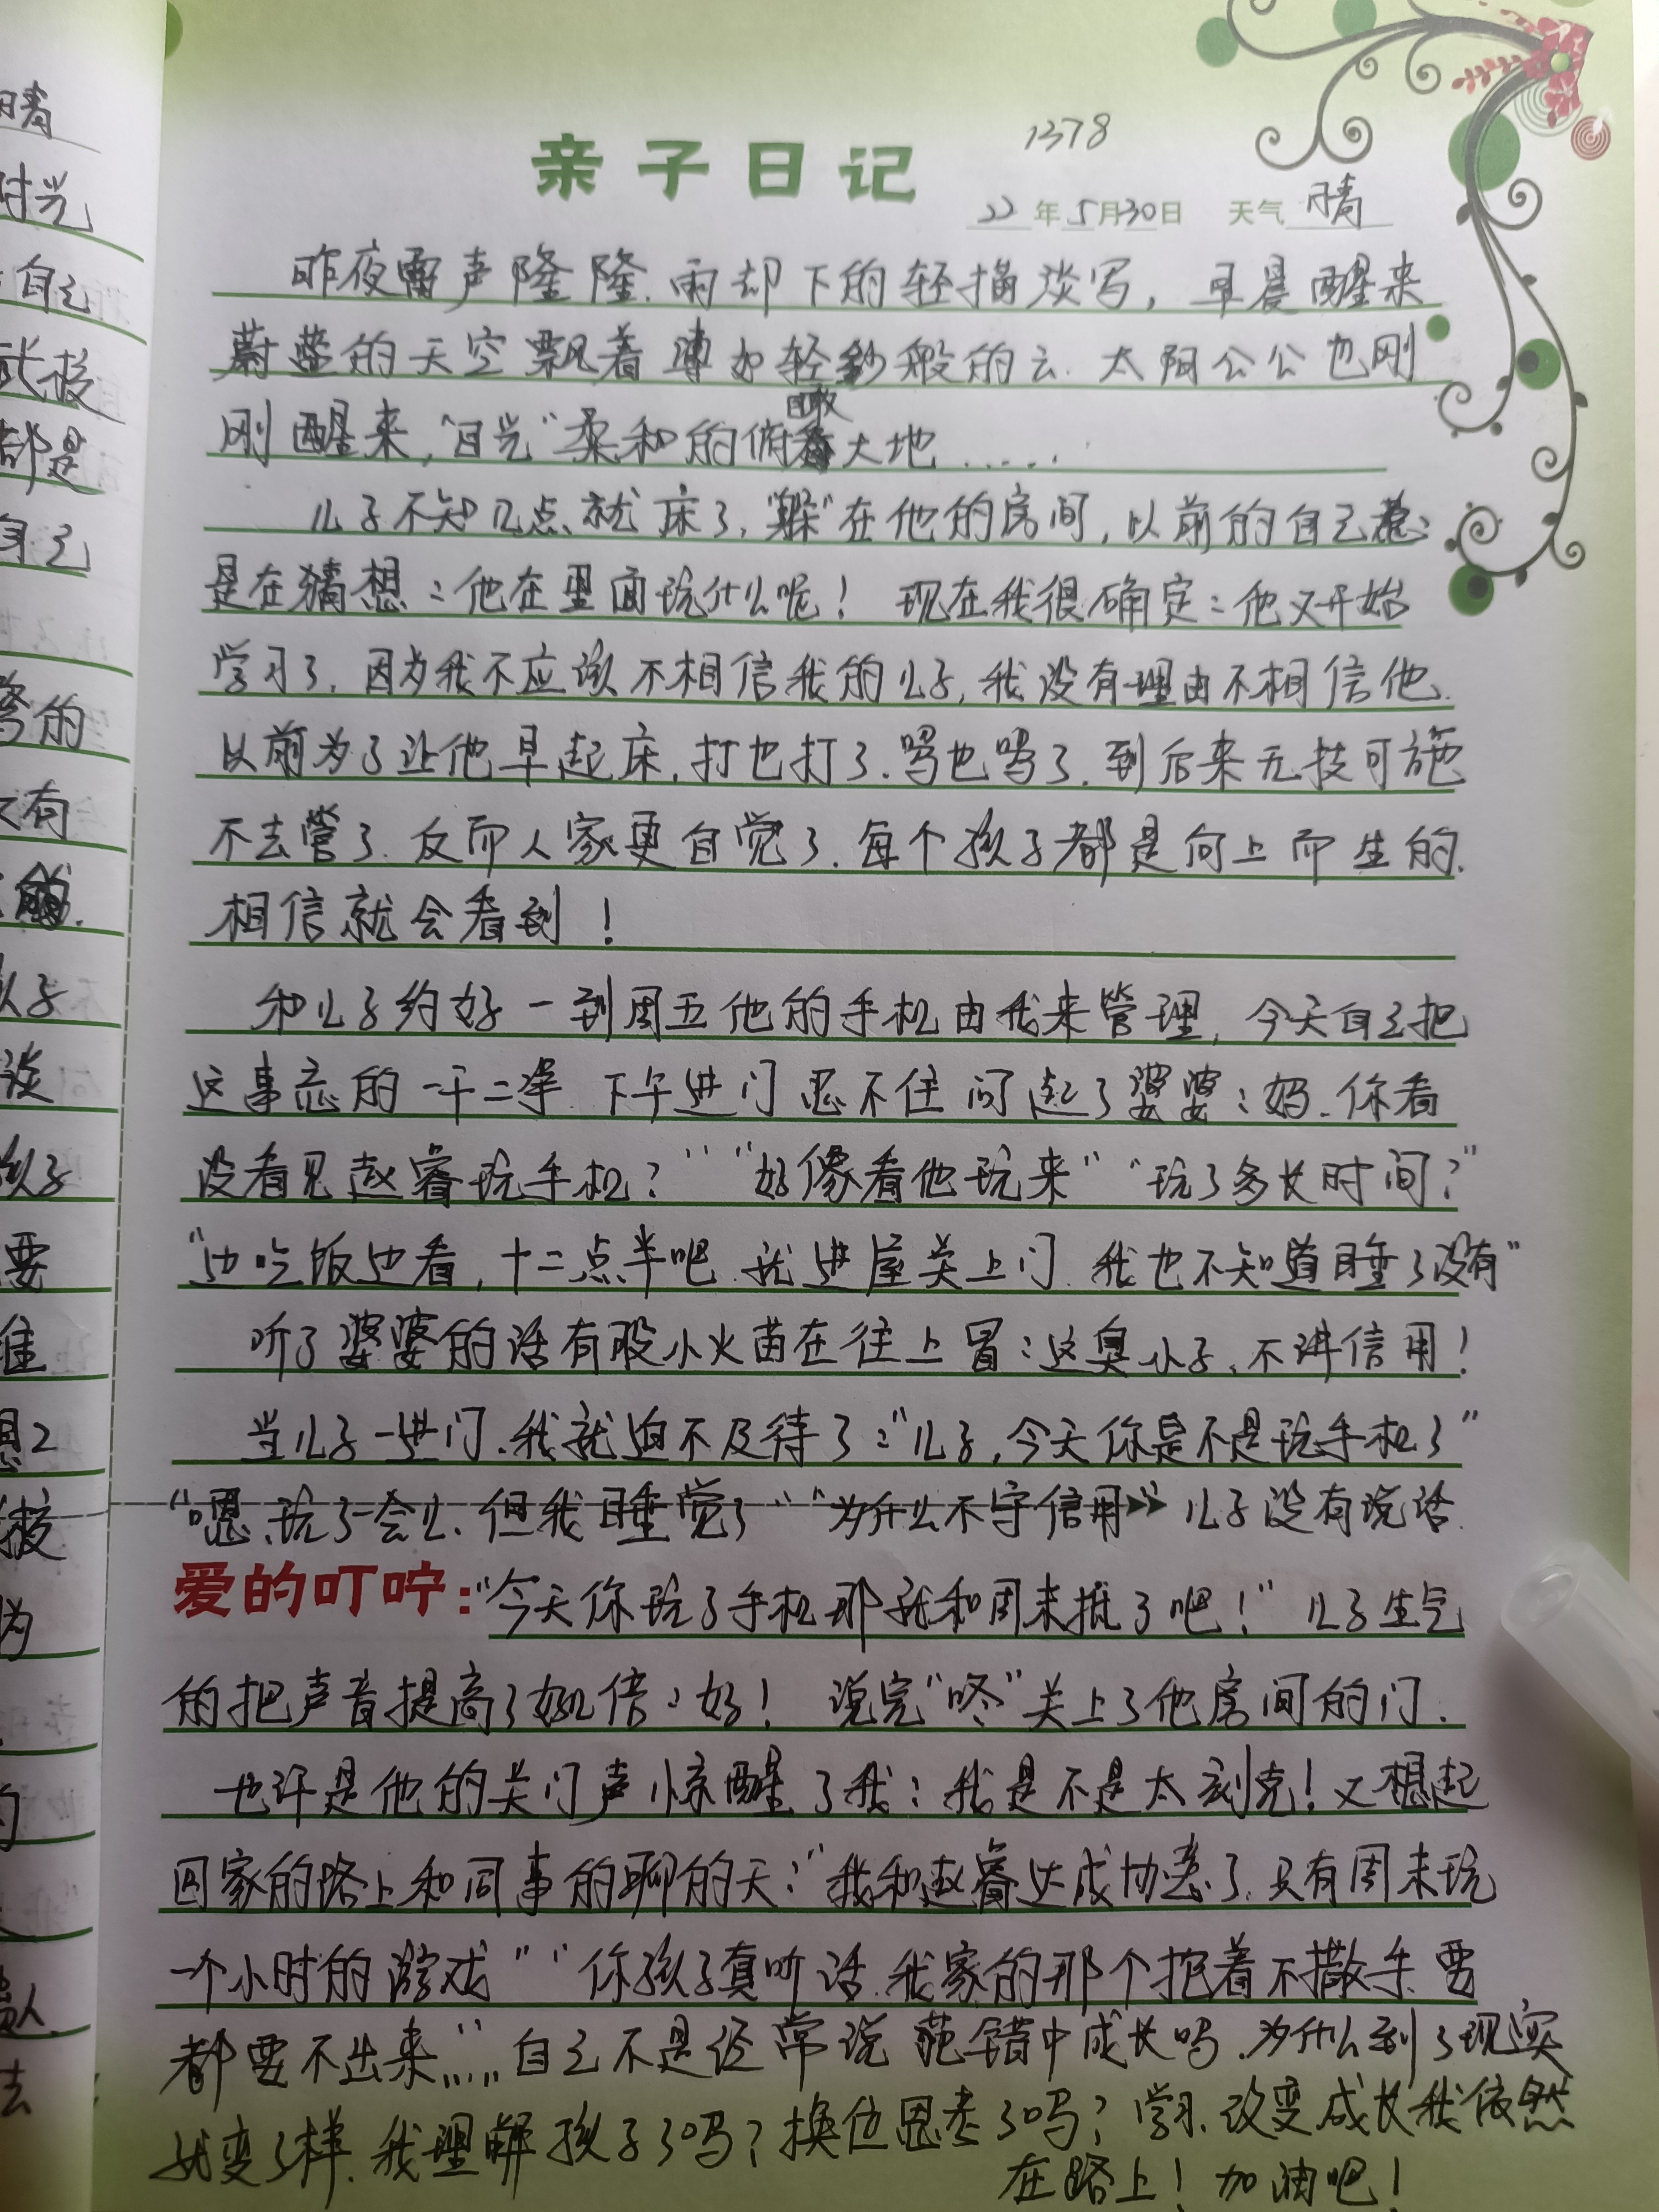 1378
亲子日记
22年5月30日 天气 晴
昨夜雷声隆隆.雨却下的轻描淡写，早晨醒来
蔚蓝的天空飘着薄如轻纱般的云.太阳公公也刚
刚醒来，"目光"柔和的俯瞰大地……
儿子不知几点就床了,"躲"在他的房间,以前的自己总
是在猜想：他在里面玩什么呢！ 现在我很确定：他又开始
学习了,因为我不应该不相信我的儿子,我没有理由不相信他.
以前为了让他早起床,打也打了.骂也骂了.到后来无技可施
不去管了.反而人家更自觉了.每个孩子都是向上而生的.
相信就会看到！
和儿子约好一到周五他的手机由我来管理,今天自己把
这事忘的一干二净.下午进门忍不住问起了婆婆：妈.你看
没看见赵睿玩手机？""好像看他玩来""玩了多长时间？"
"边吃饭边看,十二点半吧.就进屋关上门.我也不知道睡了没有"
听了婆婆的话有股小火苗在往上冒：这臭小子,不讲信用！
当儿子一进门.我就迫不及待了："儿子,今天你是不是玩手机了"
"嗯.玩了一会儿.但我睡觉了""为什么不守信用" 儿子没有说话.
爱的叮咛："今天你玩了手机那就和周末抵了吧！" 儿子生气
的把声音提高了好几倍：好！ 说完"咚"关上了他房间的门.
也许是他的关门声惊醒了我：我是不是太刻克！又想起
回家的路上和同事的聊的天："我和赵睿达成协意了.只有周末玩
一个小时的游戏""你孩子真听话.我家的那个抱着不撒手.要
都要不出来"……自己不是经常说 范错中成长吗.为什么到了现实
就变了样.我理解孩子了吗？换位思考了吗？学习.改变成长我依然
在路上！加油吧！
时光
自己
都是
自己
的
有
孩子
谈
孩子
要
准
的
去